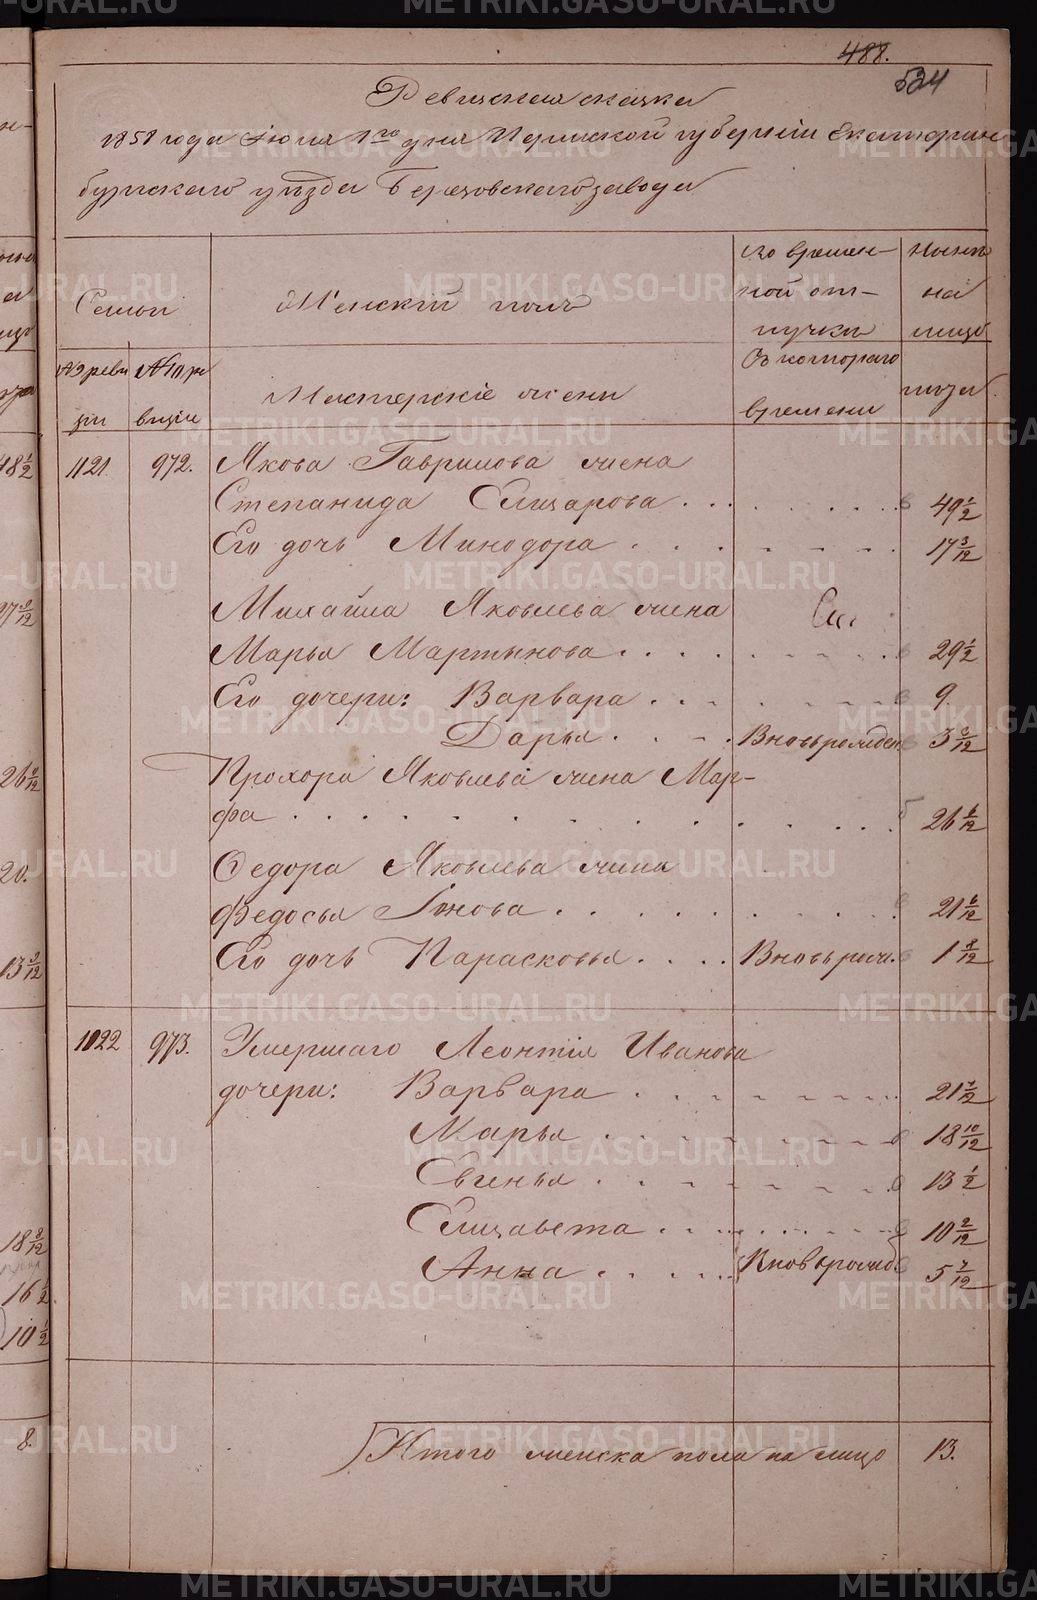 488.
534
Ревизская сказка
1858 года Июня 1го дня Пермской губернии Екатерин
бургскаго уезда Березовскаго завода
Семьи
Женский полъ
Во времен-
ной от-
лучки
Ныне
на
лицо
№ 9 реви
зии
№ 10 ре
визии
Мастерскіе жены
Съ котораго
времени
лета
1121 972. Якова Гаврилова жена
Степанида Елизарова 49 1/2
Его дочь Минодора 17 3/12
Михайла Яковлева жена
Марья Мартынова 29 1/2
Его дочери: Варвара 9.
Дарья Вновьрожден 3 6/12
Прохора Яковлева жена Мар-
фа 26 6/12
Федора Яковлева жена
Федосья Іонова 21 6/12
Его дочь Парасковья Вновьрож. 1 8/12
1122 973. Умершаго Леонтія Иванова
дочери: Варвара 21 7/12
Марья 18 10/12
Евгенья 13 1/2
Елизавета 10 2/12
Анна Вновьрожд 5 7/12
Итого женска пола на лицо 13.
METRIKI.GASO-URAL.RU